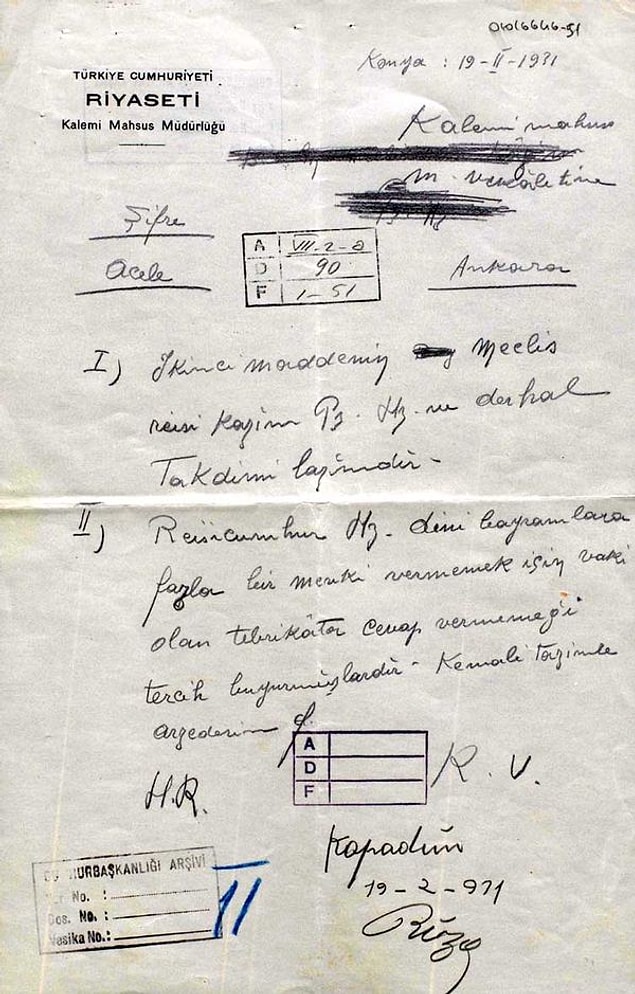 01016646-51
Konya : 19-II-1931
TÜRKİYE CUMHURİYETİ
RİYASETİ
Kalemi Mahsus Müdürlüğü
Kalemi mahsus
m. vekâletine
Şifre
Acele
A VII-2-a
D 90
F 1-51
Ankara
I) İkinci maddeniŋ Meclis
reisi Kazim Pş. Hz. ne derhal
Takdimi lazimdir-
II) Reisicumhur Hz. dini bayramlara
fazla bir mevki vermemek içiŋ vaki
olan tebrikâta cevap vermemeği
tercih buyurmuşlardir- Kemali Tazimle
arzederim
A
D
F
H.R.
R. V.
Kapadım
19-2-931
Rıza
CUMHURBAŞKANLIĞI ARŞİVİ
Yer No. :
Dos. No. :
Vesika No.:
11